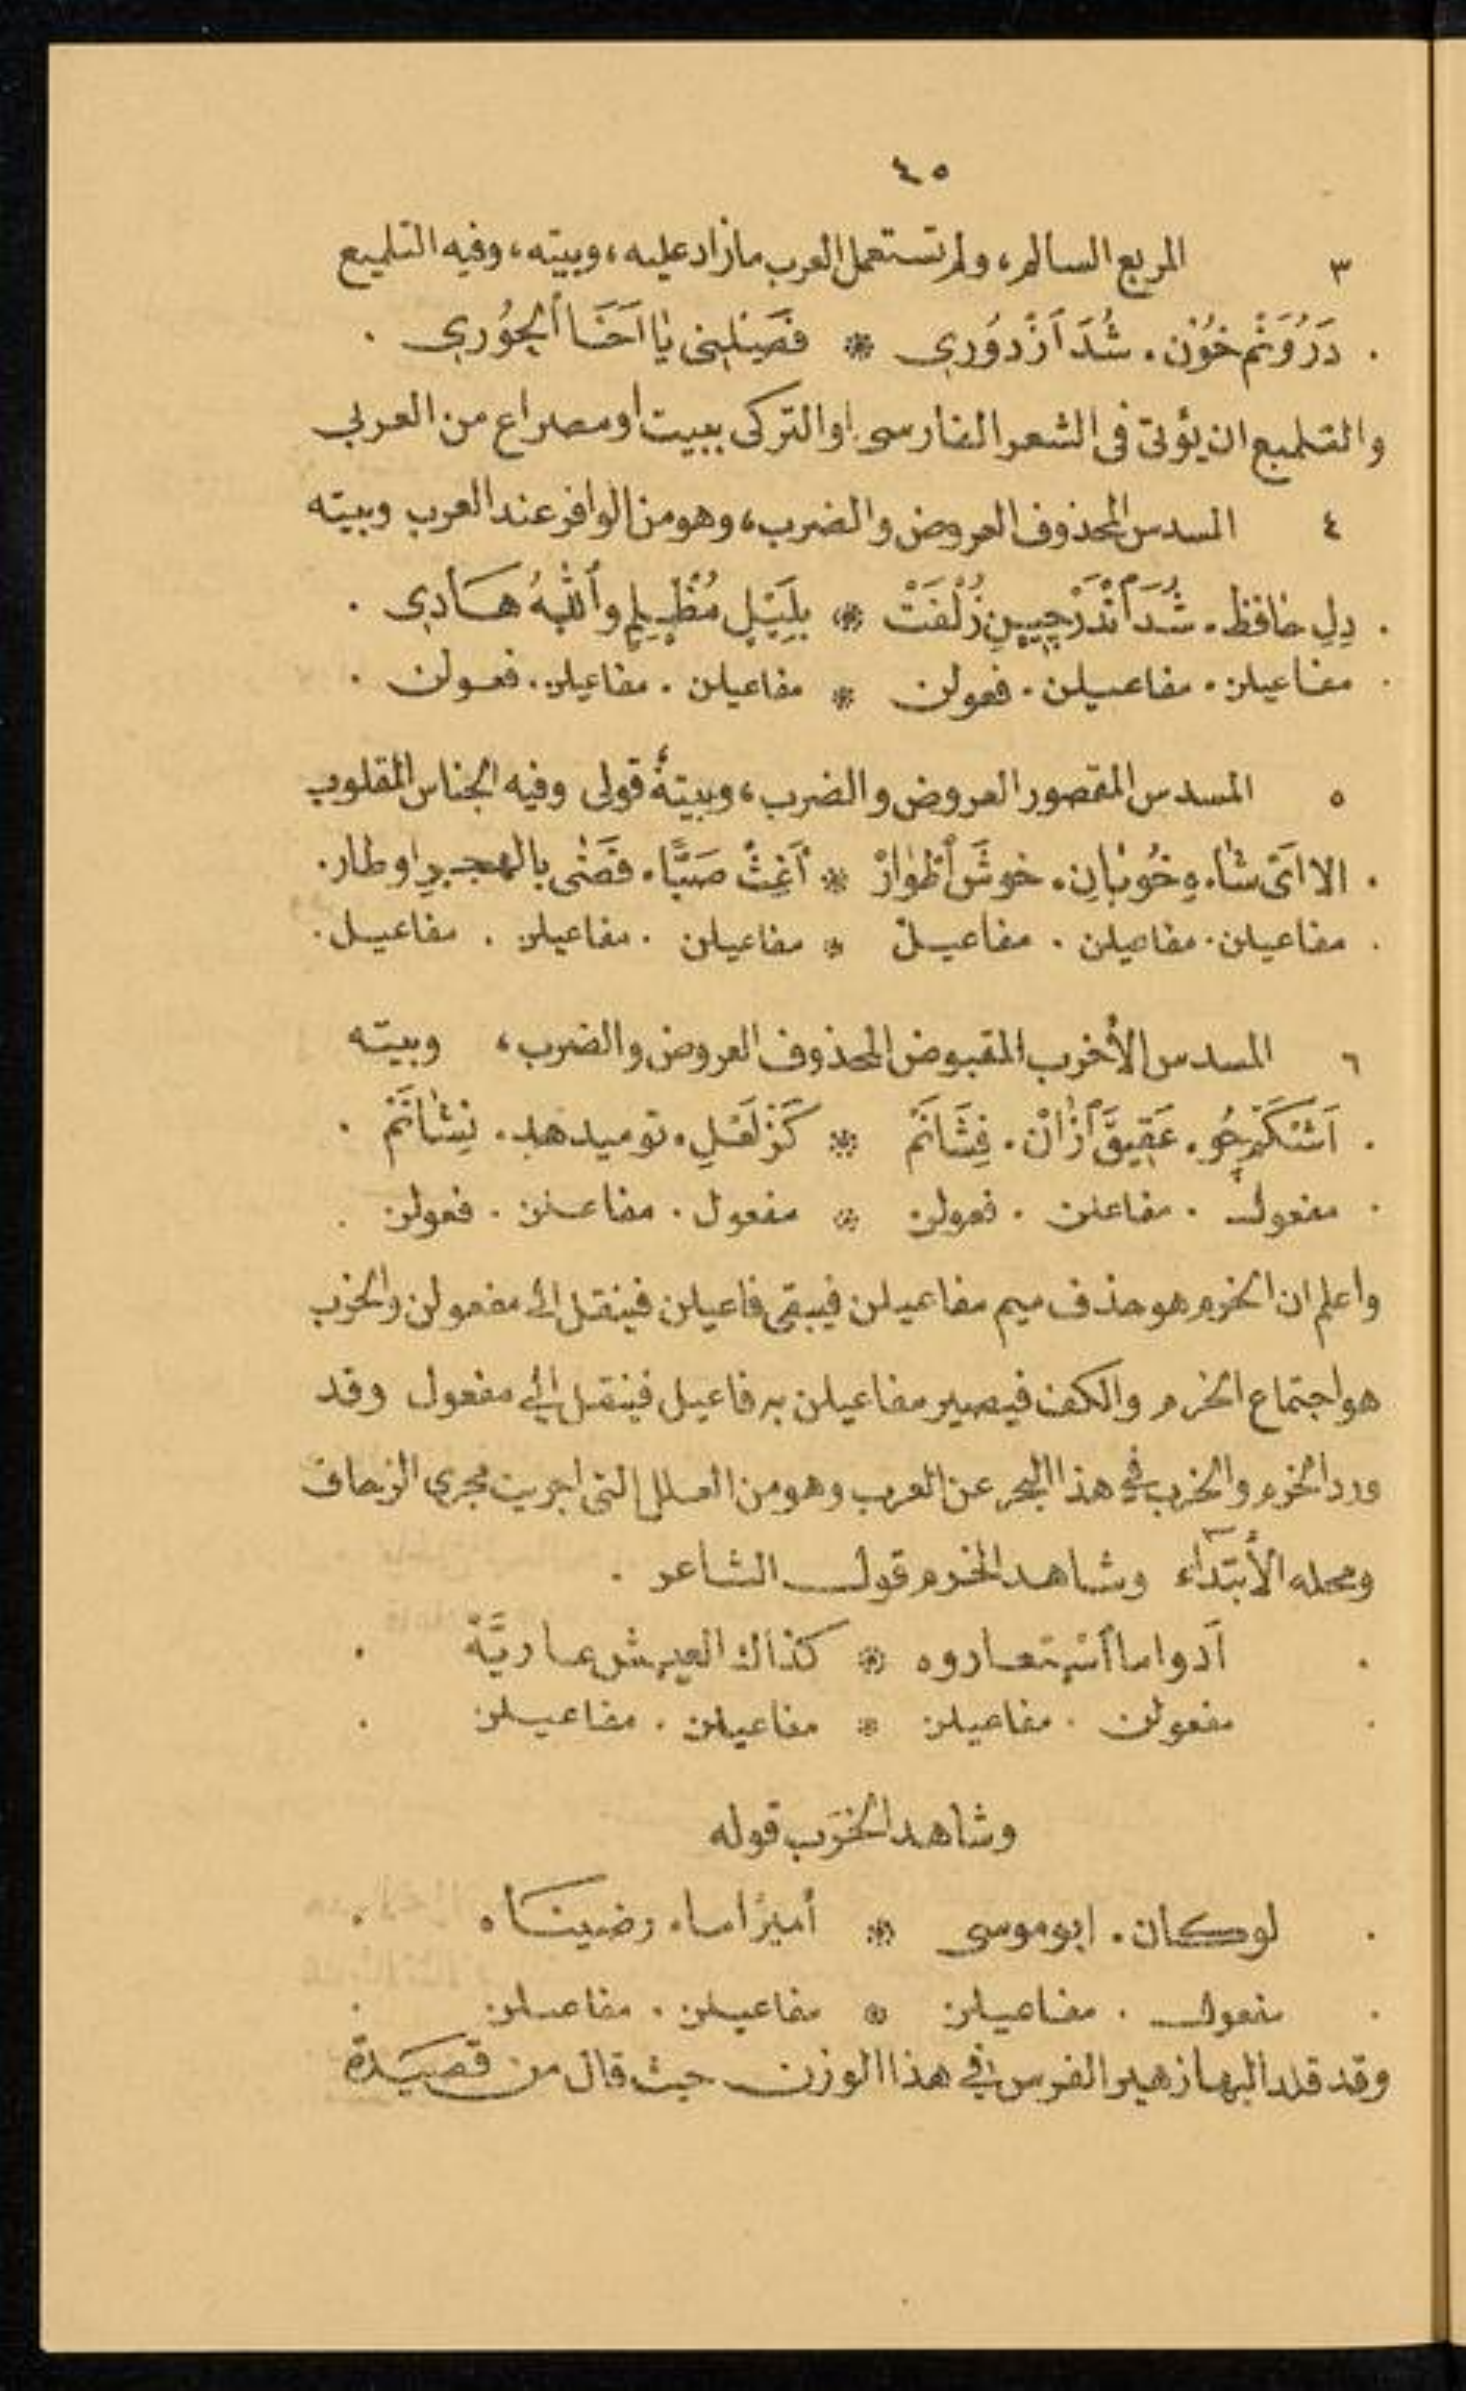 ٤٥
٣ المربع السالم، ولم تستعمل العرب مازاد عليه، وبيته، وفيه التلميع
. دَرُوَنْم خُوْن . شُدَ اَزْ دوُري * فَصَيْلِني يٰا اَخَا الجوُري .
والتلميع ان يؤتى فى الشعر الفارسى او التركى ببيت او مصراع من العربي
٤ المسدس المحذوف العروض والضرب، وهو من الوافر عند العرب وبيته
. دِلِ حٰافظ . شُدَ اَنْدَرْ چِينِ زُلْفَتْ * بِلَيْلٍ مُظْلِمٍ واَللهُ هَادِي .
. مفاعيلن . مفاعيلن . فعولن * مفاعيلن . مفاعيلن . فعولن .
٥ المسدس المقصور العروض والضرب، وبيتهُ قولى وفيه الجناس المقلوب
. الا اَىْ شٰاه . وِ خُوبٰانِ . خوشَ اَطْوٰارْ * اَغِثْ صَبًّا . قَضٰى بالهجرِ اوطار .
. مفاعيلن . مفاعيلن . مفاعيلْ * مفاعيلن . مفاعيلن . مفاعيل .
٦ المسدس الأخرب المقبوض المحذوف العروض والضرب، وبيته
. اَشْكَمْ چُو . عَقِيقَ اَزٰانْ . فِشَانَمْ * كَزْ لَعْلِ . تو ميدهد . نِشٰانَمْ .
. مفعول . مفاعلن . فعولن * مفعول . مفاعلن . فعولن .
واعلم ان الخرم هو حذف ميم مفاعيلن فيبقى فاعيلن فينقل الى مفعولن والخرب
هو اجتماع الخرم والكف فيصير مفاعيلن به فاعيل فينقل الى مفعول وقد
ورد الخرم والخرب في هذا البحر عن العرب وهو من العلل التى اجريت مجرى الزحاف
ومحله الأبتدآء وشاهد الخرم قول الشاعر .
. اَدوا ما اَسْتعاروه * كذاك العيش عاريَّهْ .
. مفعولن . مفاعيلن * مفاعيلن . مفاعيلن .
وشاهد الخرَب قوله
. لوكان . ابو موسى * أميرًا ما . رضيناه .
. مفعول . مفاعيلن * مفاعيلن . مفاعيلن .
وقد قلد البها زهير الفرس في هذا الوزن حيث قال من قصيَدة